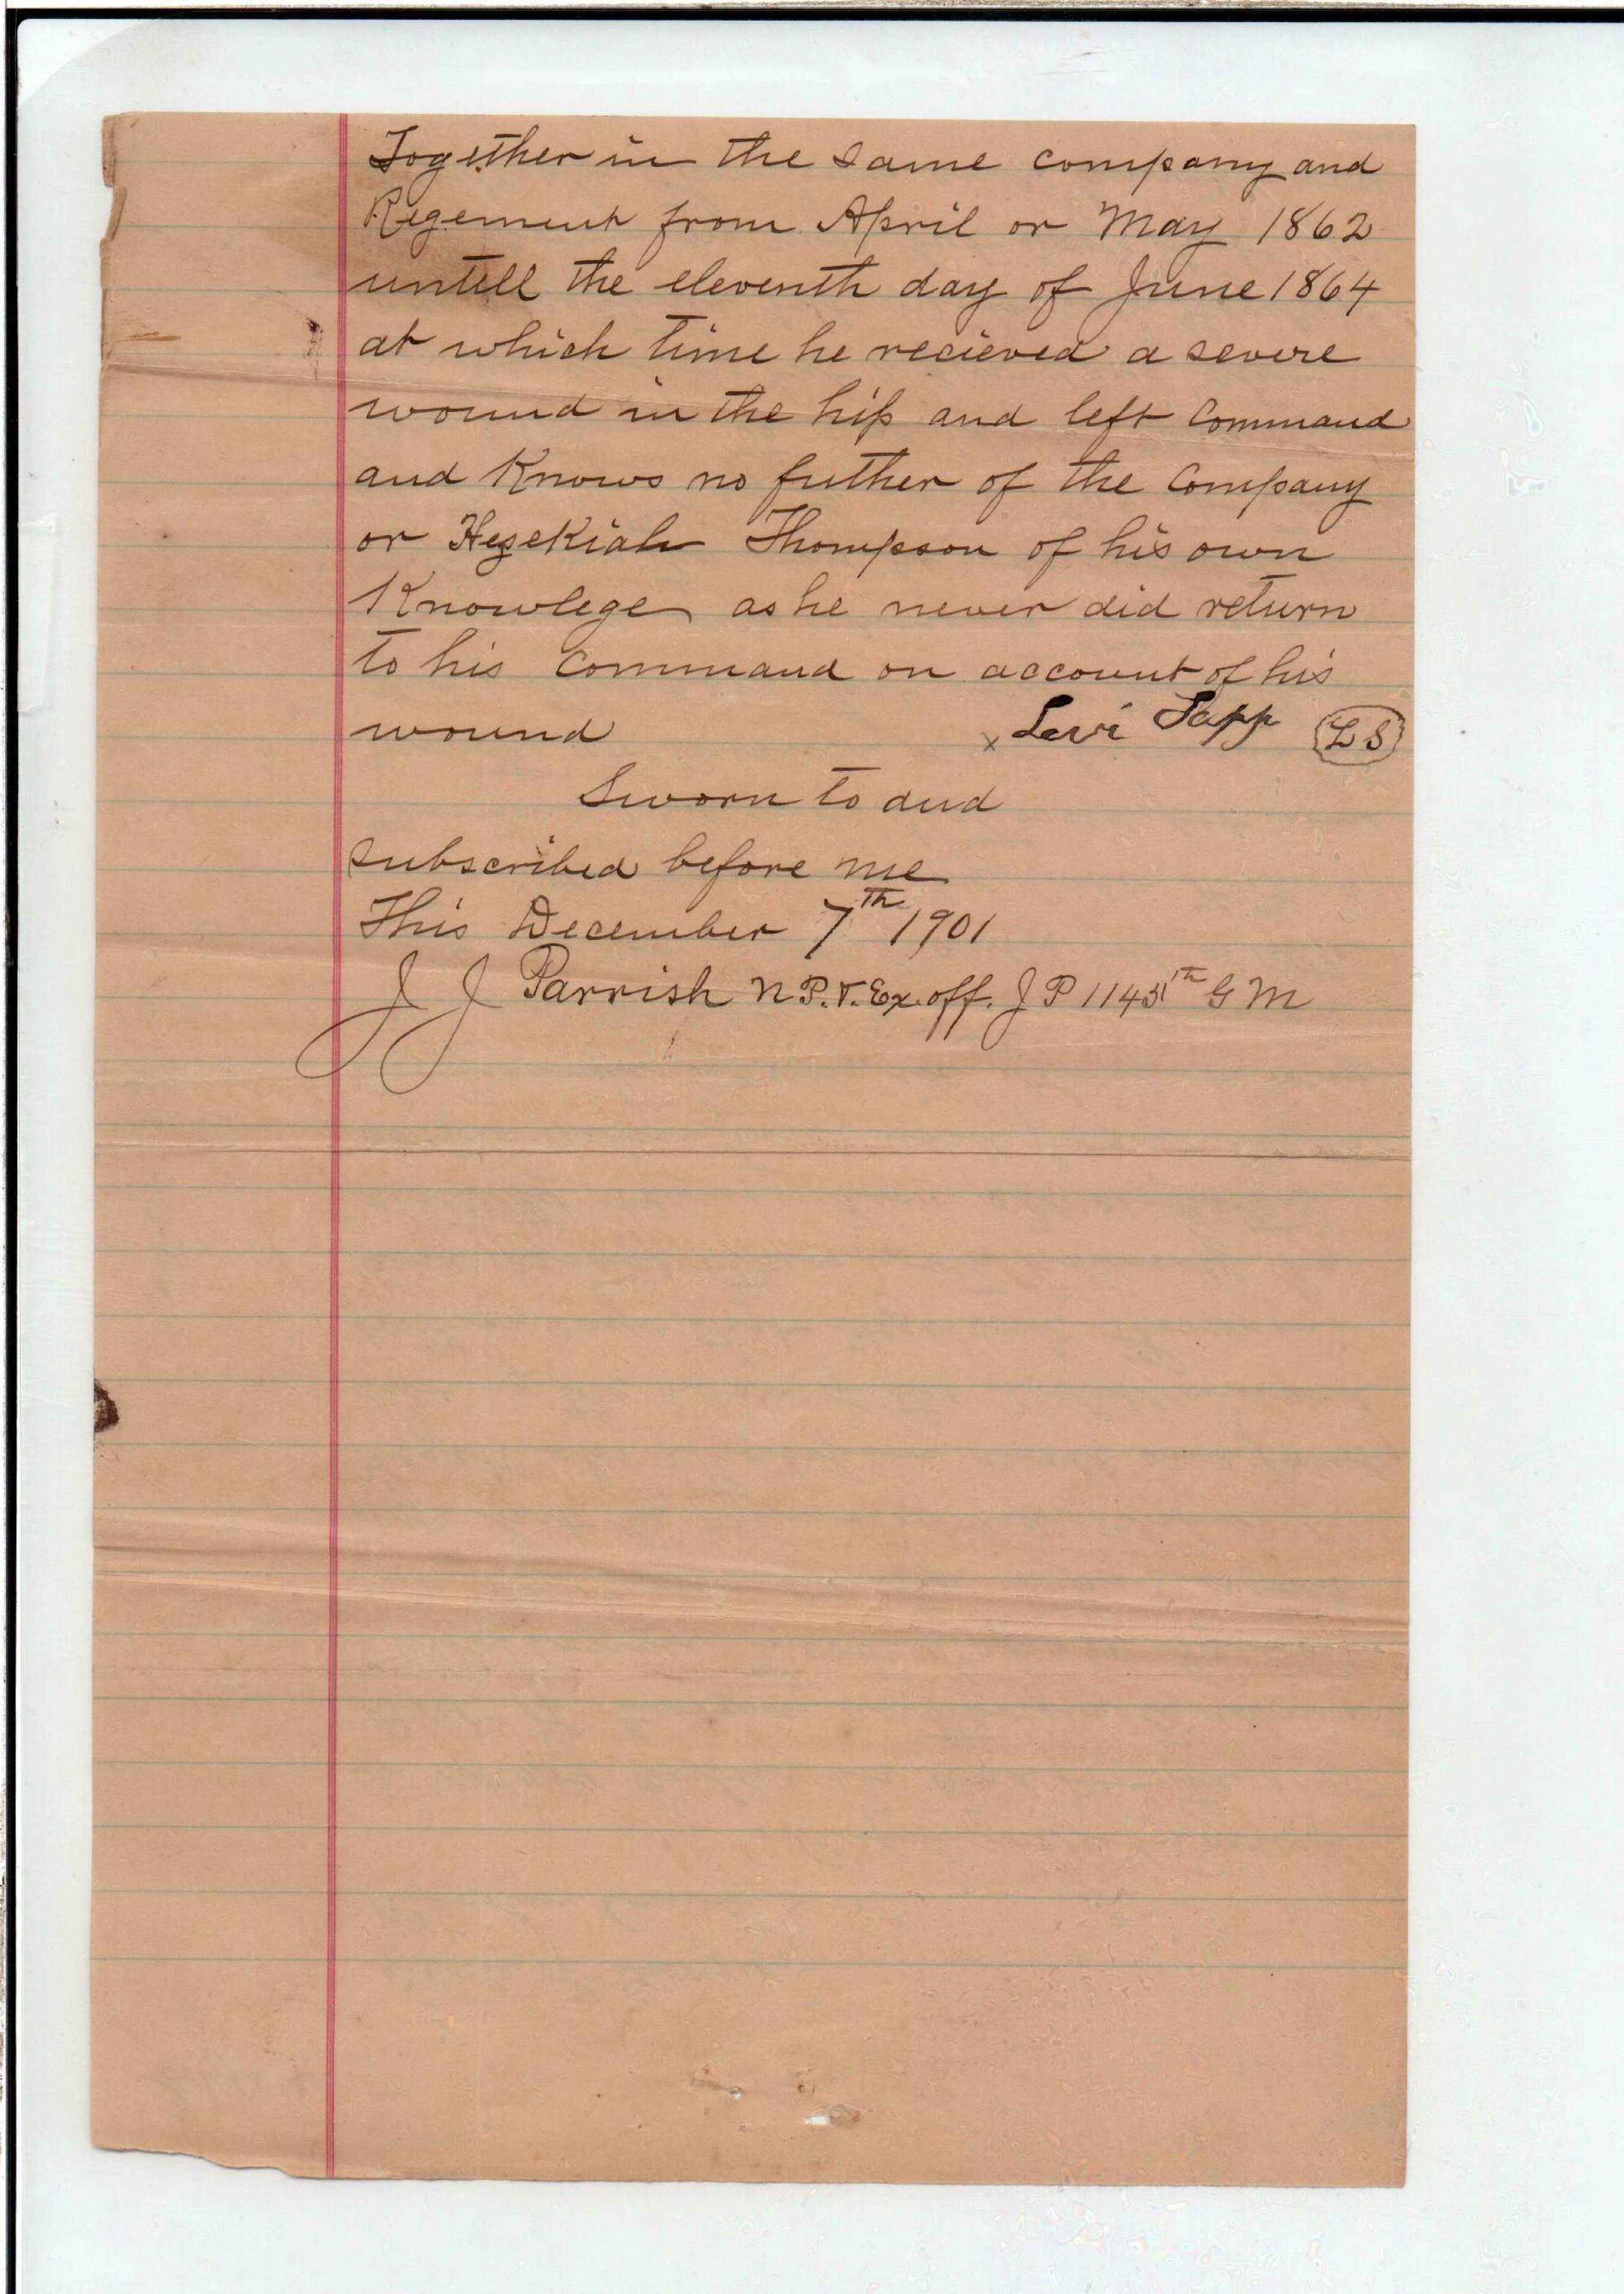 Together in the same company and
Regement from April or May 1862
untill the eleventh day of June 1864
at which time he recieved a severe
wound in the hip and left command
and Knows no futher of the Company
or Hezekiah Thompson of his own
Knowlege as he never did return
to his command on account of his
wound x Levi Sapp LS
Sworn to and
subscribed before me
This December 7th 1901
J J Parrish N P. Ex. off. J P G M